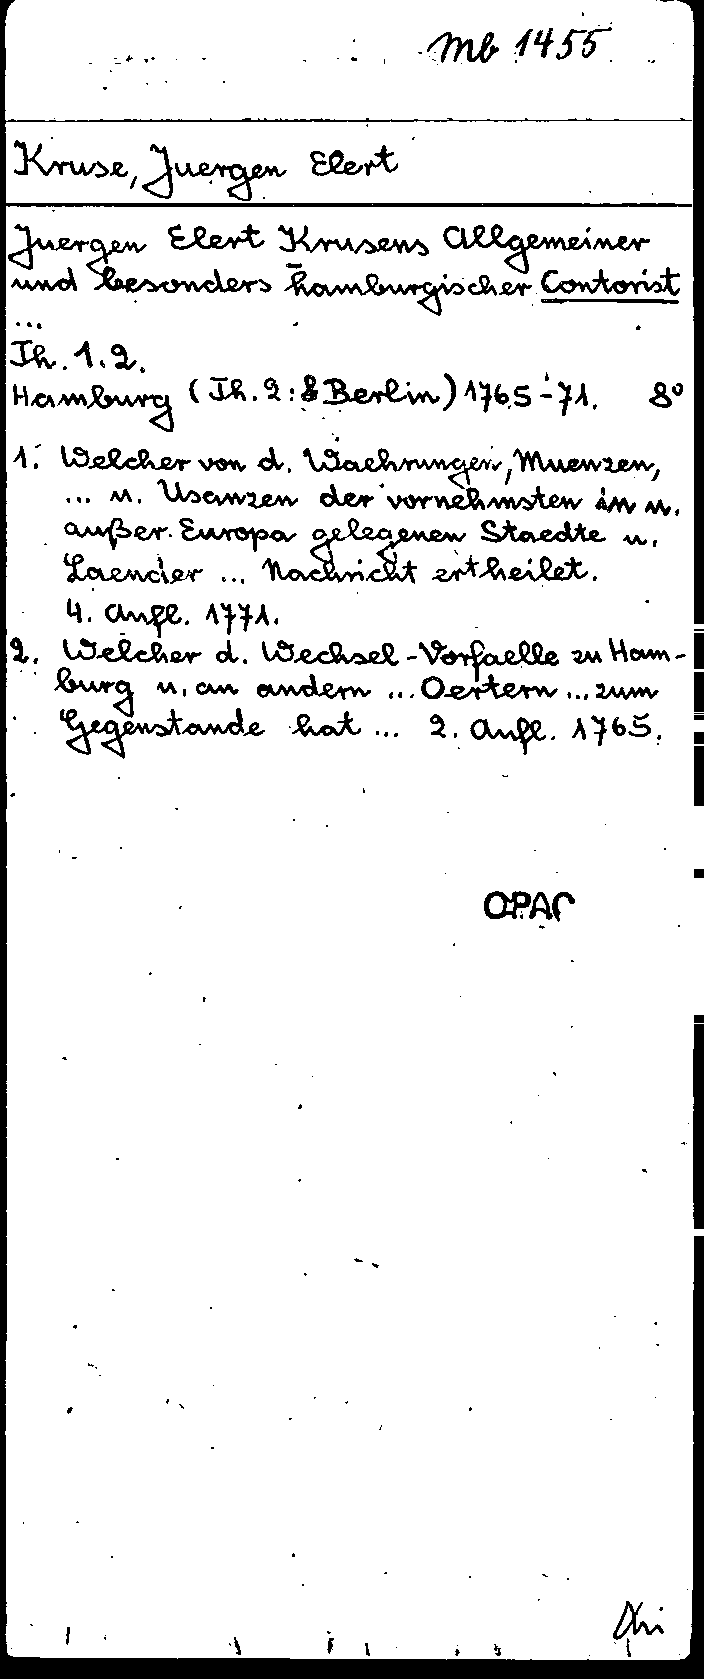 Mb 1455
Kruse, Juergen Elert
Juergen Elert Krusens Allgemeiner
und besonders hamburgischer Contorist
...
Th. 1.2.
Hamburg (Th. 2: & Berlin) 1765-71. 8°
1. Welcher von d. Waehrungen, Muenzen,
... u. Usanzen der vornehmsten in u.
außer Europa gelegenen Staedte u.
Laender ... Nachricht ertheilet.
4. Aufl. 1771.
2. Welcher d. Wechsel-Vorfaelle zu Ham-
burg u. an andern ... Oertern ... zum
Gegenstande hat ... 2. Aufl. 1765.
OPAC